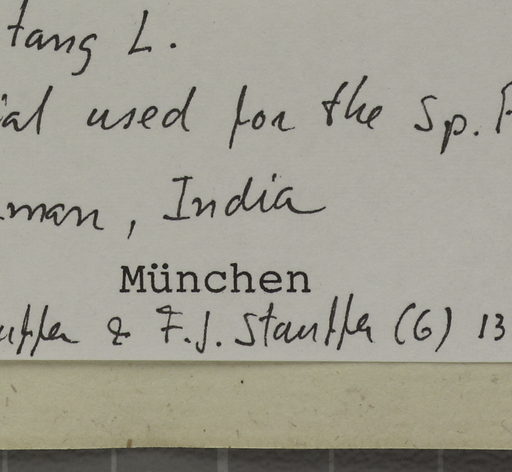 tang L.
ial used for the Sp. P
man, India
München
uffer & F.J. Stauffer (G) 13